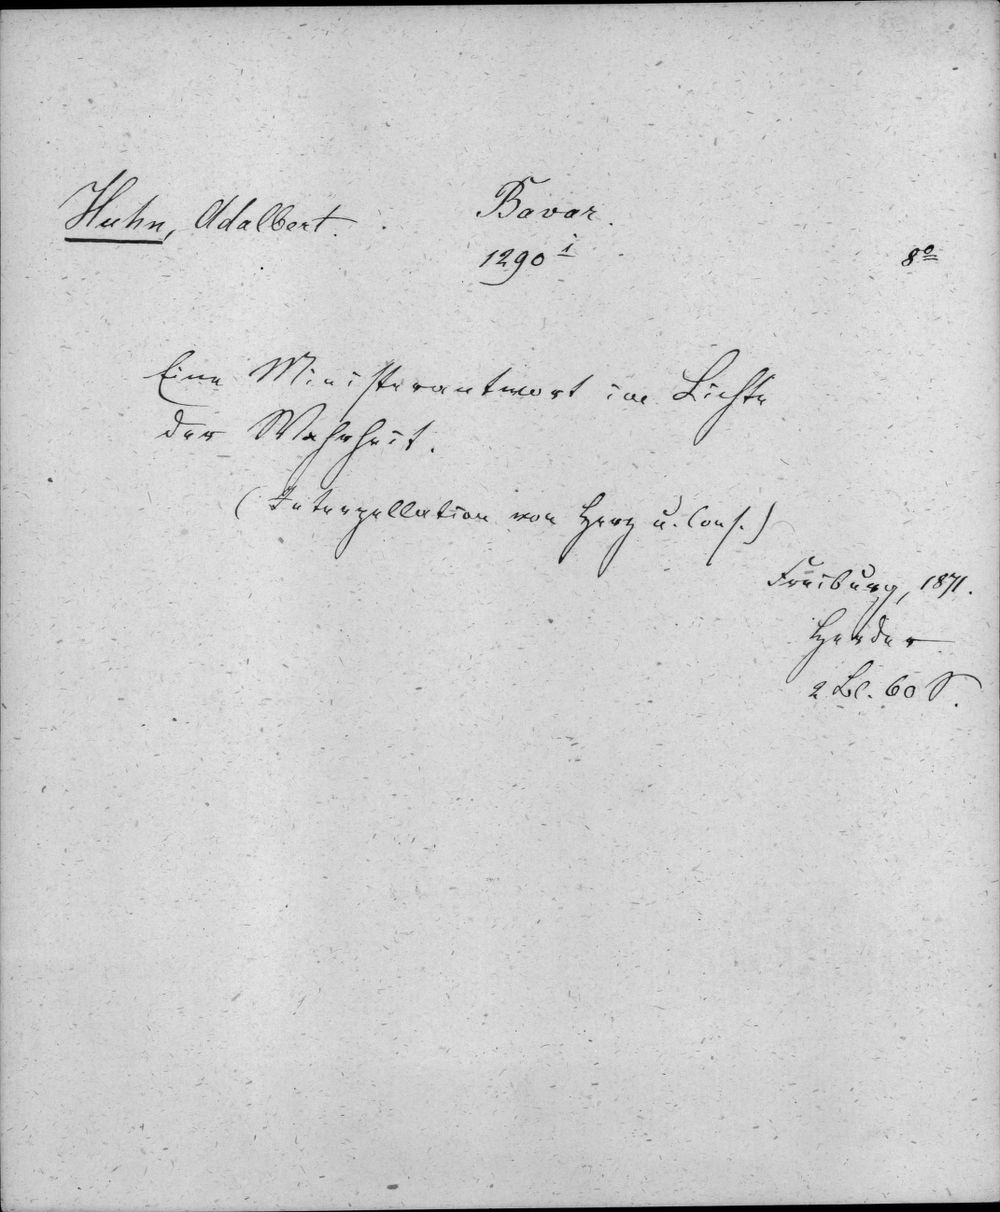 Huhn, Adalbert.
Bavar.
1290 i
8o
Eine Ministerantwort im Lichte
der Wahrheit.
(Interpellation von Herz u. Cons.)
Freiburg, 1871.
Herder
2 Bl. 60 S.